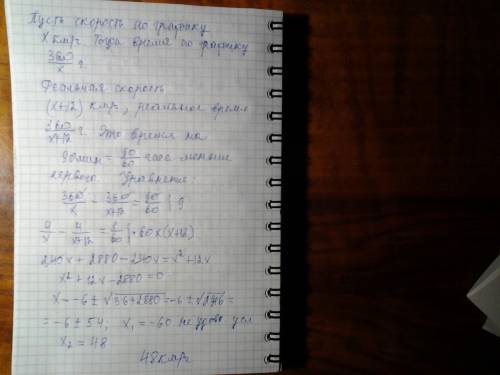 Пусть скорость по графику
x км/ч. Тогда время по графику
360/x ч.
Реальная скорость
(x+12) км/ч, реальное время
360/(x+12) ч. Это время на
90 мин = 90/60 часа меньше
первого. Уравнение:
360/x - 360/(x+12) = 90/60 | : 9
4/x - 4/(x+12) = 1/60 | · 60x(x+12)
240x + 2880 - 240x = x² + 12x
x² + 12x - 2880 = 0
x = -6 ± √(36+2880) = -6 ± √2916 =
= -6 ± 54; x₁ = -60 не удов. усл.
x₂ = 48
48 км/ч